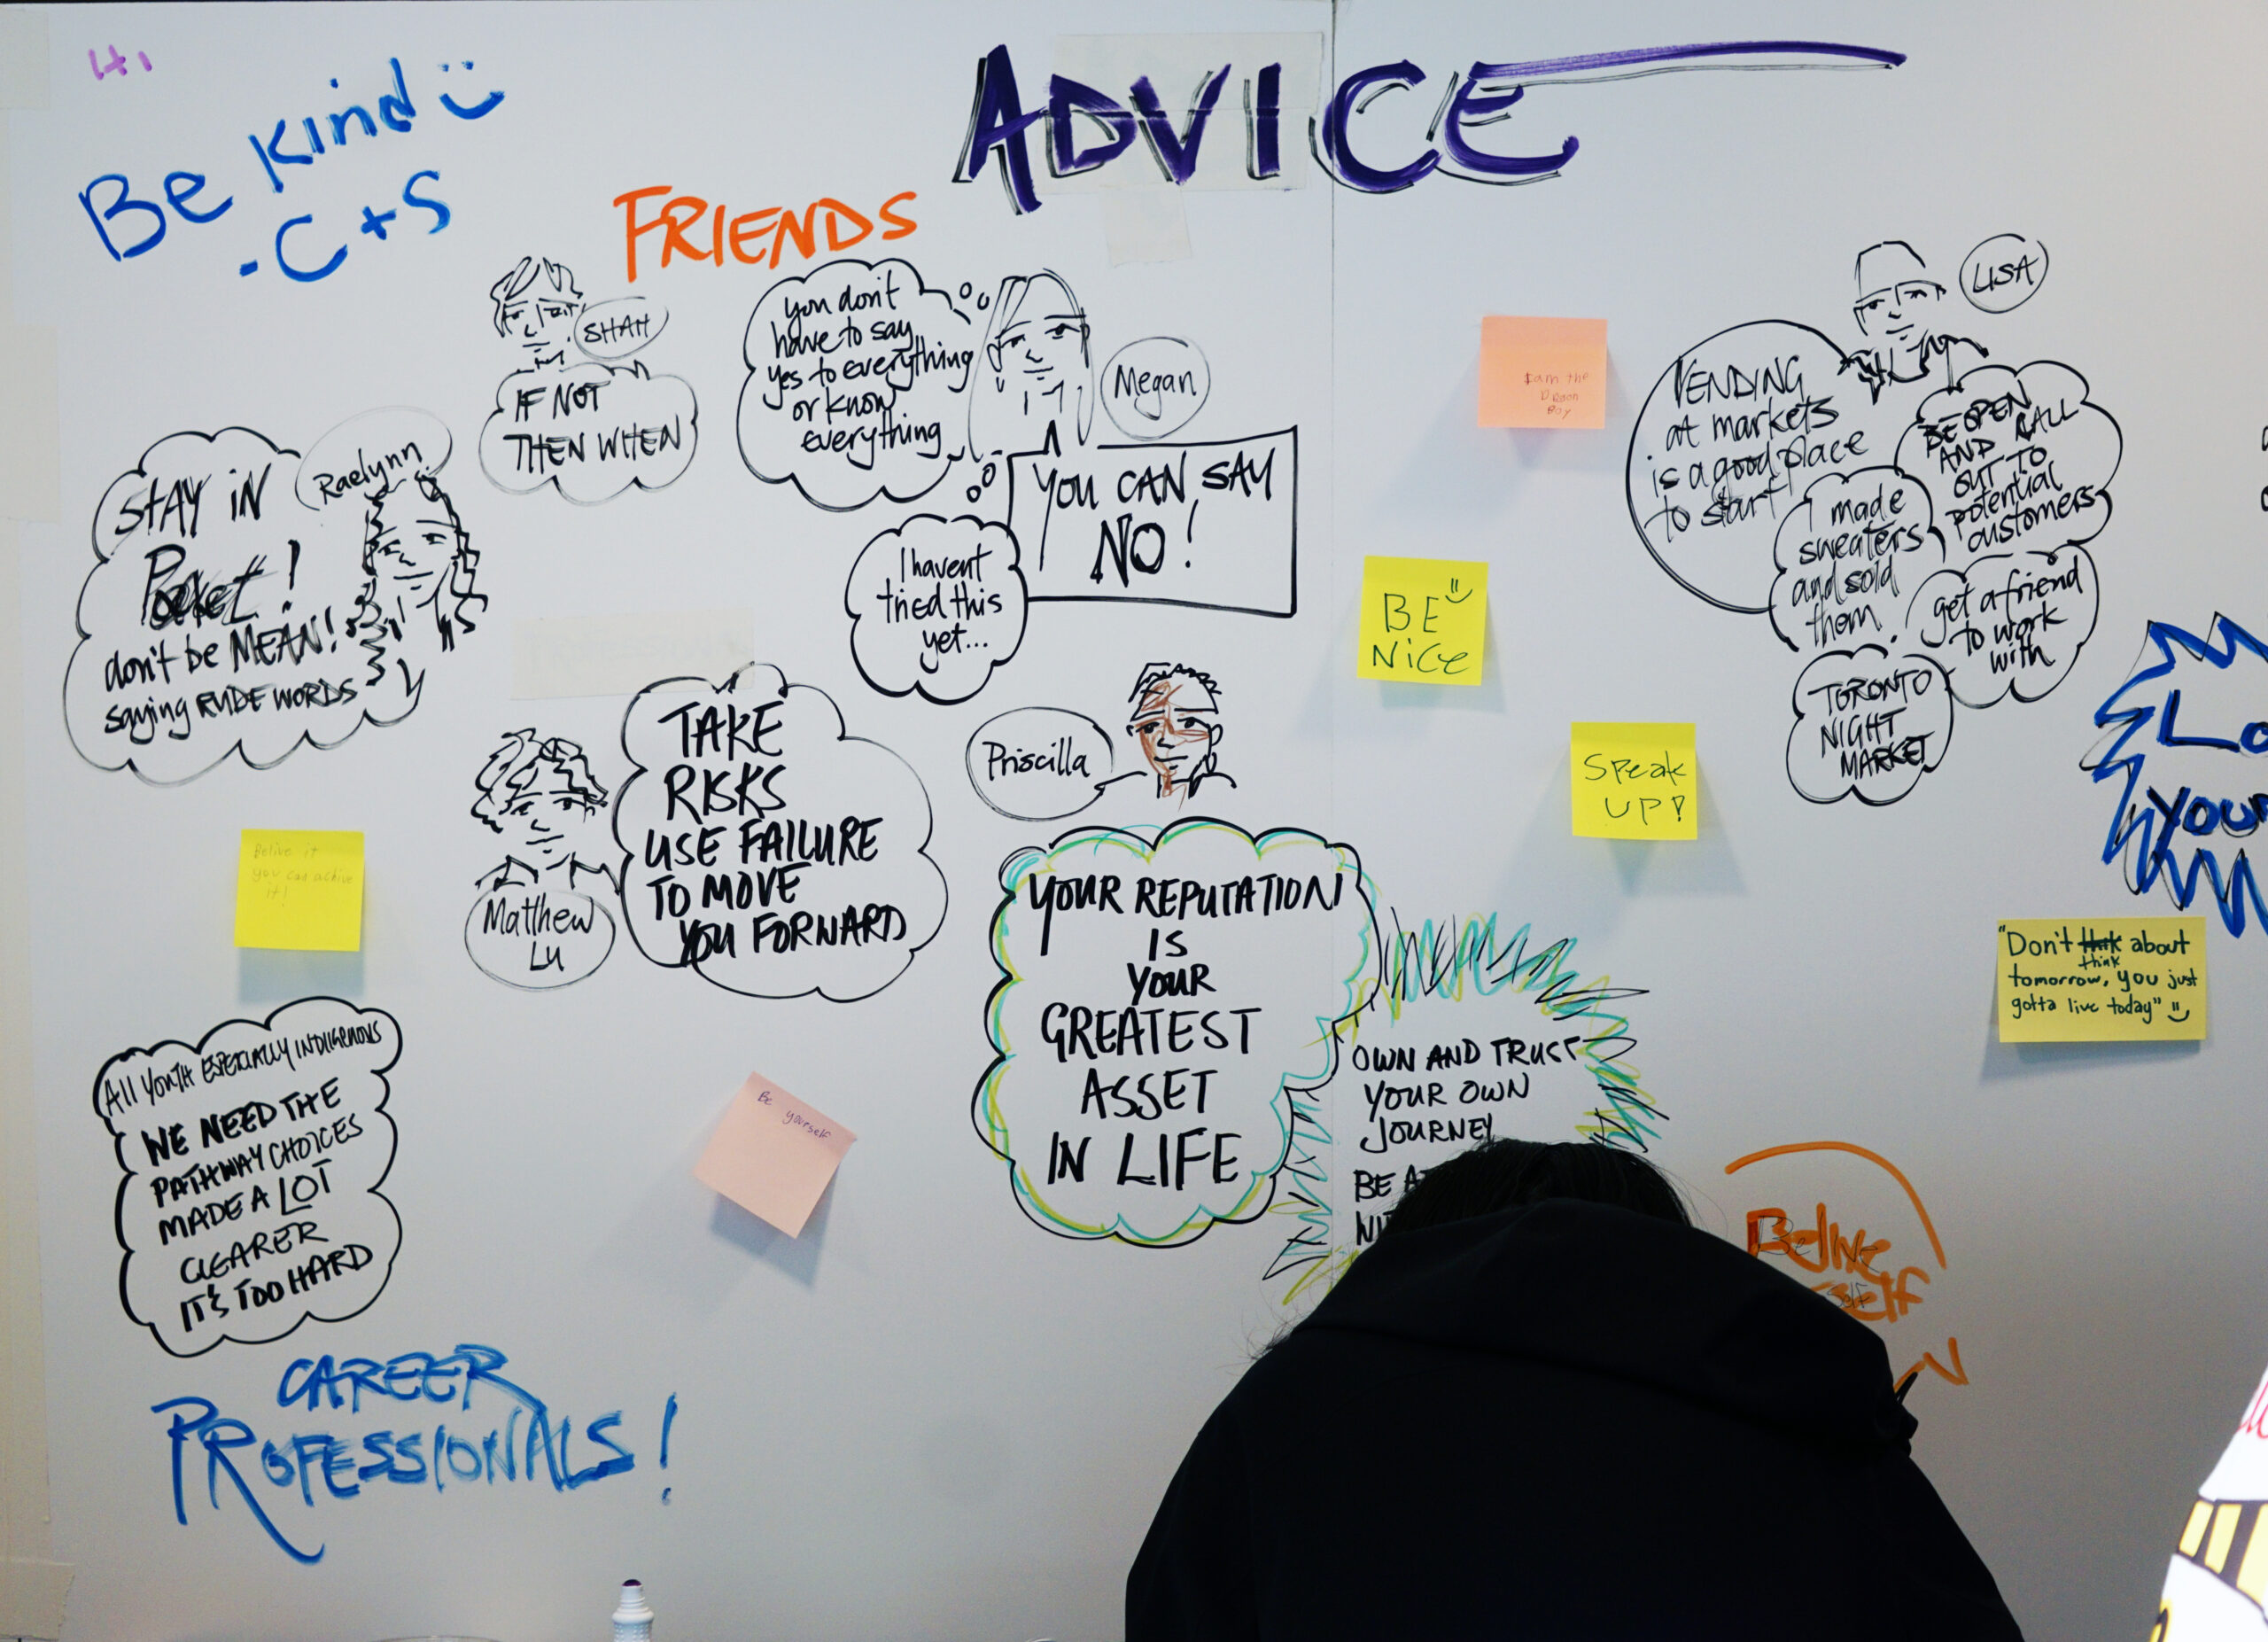 Hi
Be Kind
.C+S
ADVICE
FRIENDS
SHAH
IF NOT
THEN WHEN
you don't
have to say
yes to everything
or know
everything
Megan
YOU CAN SAY
NO!
I havent
tried this
yet...
Raelynn
STAY IN
Pocket!
don't be MEAN!
saying RUDE WORDS
Matthew
Lu
TAKE
RISKS
USE FAILURE
TO MOVE
YOU FORWARD
Priscilla
YOUR REPUTATION
IS
YOUR
GREATEST
ASSET
IN LIFE
OWN AND TRUST
YOUR OWN
JOURNEY
BE
I am the
Boy
BE
NiCe
Speak
UP!
LISA
VENDING
at markets
is a good place
to start
BE OPEN
AND CALL
OUT TO
potential
customers
I made
sweaters
and sold
them.
get a friend
to work
with
TORONTO
NIGHT
MARKET
YOUR
"Don't about
think
tomorrow, you just
gotta live today"
Belive it
you can achive
it!
Be yourself
All YOUTH ESPECIALLY INDIIGENOUS
WE NEED THE
PATHWAY CHOICES
MADE A LOT
CLEARER
IT'S TOO HARD
CAREER
PROFESSIONALS!
Belive
self